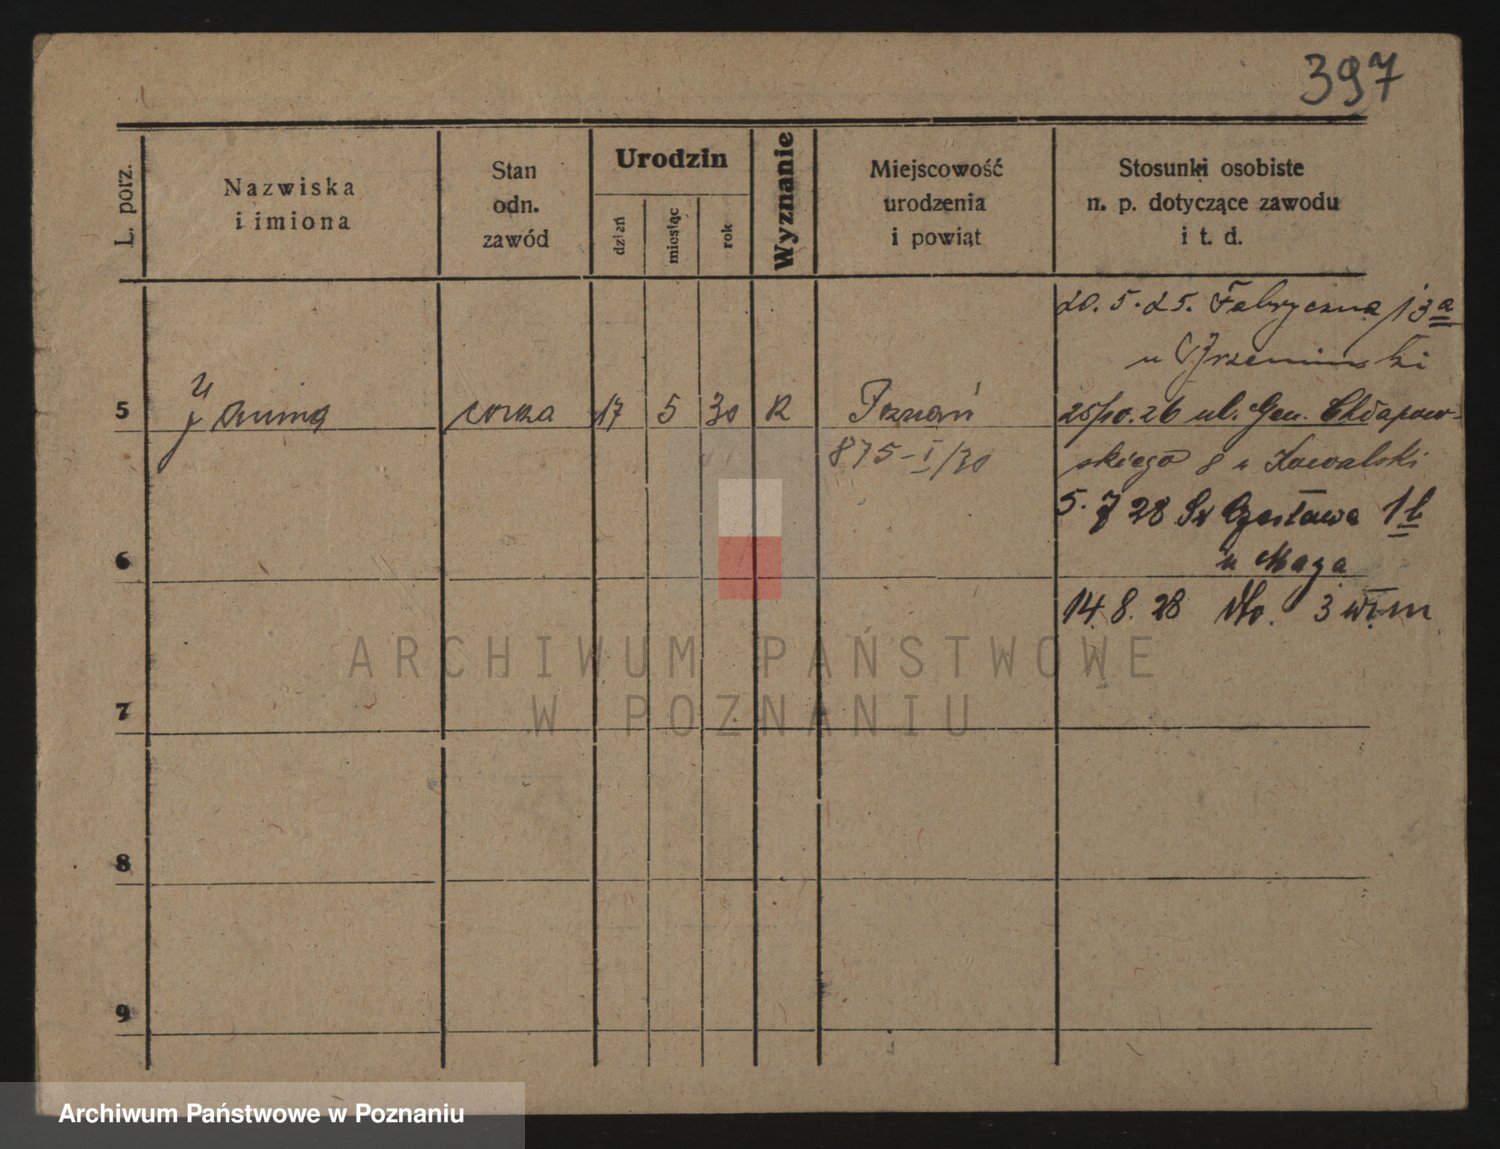 397
L. porz.
Nazwiska
i imiona
Stan
odn.
zawód
Urodzin
dzień
miesiąc
rok
Wyznanie
Miejscowość
urodzenia
i powiat
Stosunki osobiste
n. p. dotyczące zawodu
i t. d.
20. 5. 25. Fabryczna 13a
u
5
córka 17 5 30 R Poznań
875-I/30
25/10. 26 ul. Gen. Chłapow-
skiego 8 u Kowalski
5. 7 28 Św Czesława 1b
u Maza
6
14. 8. 28 dto. 3
7
8
9
ARCHIWUM PAŃSTWOWE
W POZNANIU
Archiwum Państwowe w Poznaniu